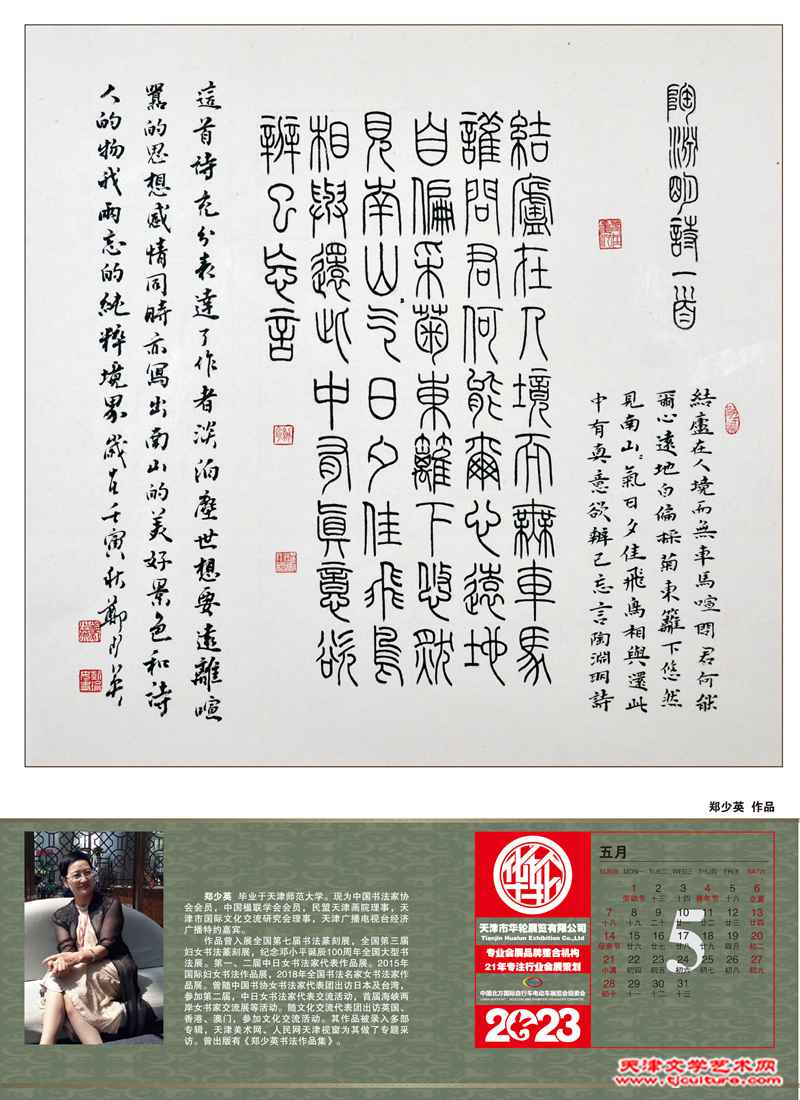 陶淵明詩一首
結廬在人境而無車馬喧問君何能
爾心遠地自偏採菊東籬下悠然
見南山〻氣日夕佳飛鳥相與還此
中有真意欲辨已忘言陶淵明詩
結廬在人境而無車馬
諠問君何能爾心遠地
自偏采菊東籬下悠然
見南山〻气日夕佳飛鳥
相與還此中有真意欲
辨已忘言
這首詩充分表達了作者淡泊塵世想要遠離喧
囂的思想感情同時亦寫出南山的美好景色和詩
人的物我兩忘的純粹境界歲在壬寅秋鄭少英
郑少英 作品
郑少英 毕业于天津师范大学。现为中国书法家协
会会员，中国楹联学会会员，民盟天津画院理事，天
津市国际文化交流研究会理事，天津广播电视台经济
广播特约嘉宾。
作品曾入展全国第七届书法篆刻展，全国第三届
妇女书法篆刻展，纪念邓小平诞辰100周年全国大型书
法展。第一、二届中日女书法家代表作品展。2015年
国际妇女书法作品展，2018年全国书法名家女书法家作
品展。曾随中国书协女书法家代表团出访日本及台湾，
参加第二届，中日女书法家代表交流活动，首届海峡两
岸女书家交流展等活动。随文化交流代表团出访英国、
香港、澳门，参加文化交流活动。其作品被录入多部
专辑，天津美术网、人民网天津视窗为其做了专题采
访。曾出版有《郑少英书法作品集》。
华轮
天津市华轮展览有限公司
Tianjin Hualun Exhibition Co.,Ltd
专业会展品牌整合机构
21年专注行业会展策划
中国北方国际自行车电动车展览会组委会
2023
五月
5
SUN日 MON一 TUE二 WED三 THU四 FRI五 SAT六
1 2 3 4 5 6
劳动节 十三 十四 青年节 十六 立夏
7 8 9 10 11 12 13
十八 十九 二十 廿一 廿二 廿三 廿四
14 15 16 17 18 19 20
母亲节 廿六 廿七 廿八 廿九 初一 初二
21 22 23 24 25 26 27
小满 初四 初五 初六 初七 初八 初九
28 29 30 31
初十 十一 十二 十三
天津文学艺术网
www.tjculture.com